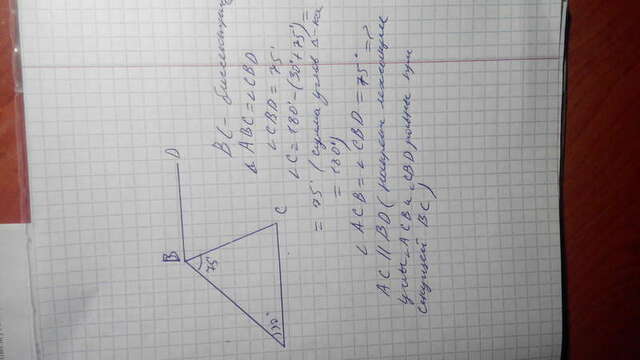 BC - биссектриса
∠ABC = ∠CBD
∠CBD = 75°
∠C = 180° - (30° + 75°) =
= 75° (сумма углов Δ-ка
= 180°)
∠ACB = ∠CBD = 75° =>
AC || BD (накрест лежащие
углы ∠ACB и ∠CBD равны при
секущей BC)
B
D
75°
C
30°